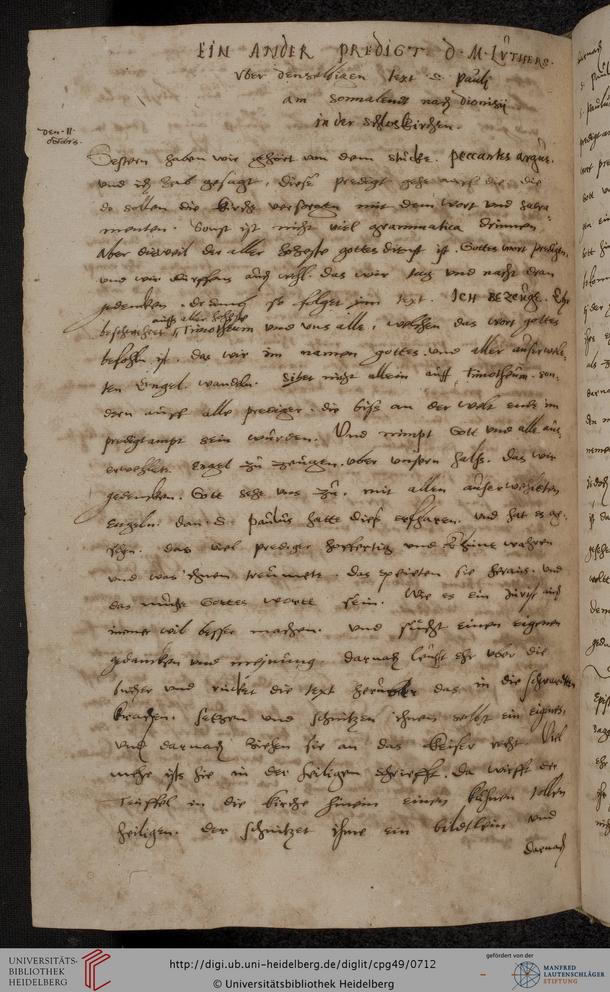 EIN ANDER PREDIGT D. M. LUTHERS.
Vber denselbigen text S. Pauli
am Sonnabends nach Dionisij
in der Schloskirchen.
den. 11.
Gestern haben wir gehört von dem stücke. Peccantes argue.
vnd ich hab gesagt, diese predigt gehe auff die, die
da sollen die Kirche versorgen mit dem wort vnd Sacra
menten. Sonst ist nicht viel grammatica drinnen.
Aber dieweil der aller hoheste gottes dienst ist. Gottes wort predigen,
vnd wir dürffen auch wohl. das wir tag vnd nacht dran
gedencken. so folget im text. ICH BEZEUGE. Ehr
auffs aller hohste
beschweret Timotheum vnd vns alle, welchen das wort gottes
befohln ist, das wir im namen gottes vnd aller auserwel-
ten Engel wandeln. nicht allein auff Timotheum. son-
dern auff alle prediger. die biss an der welt ende im
predigampt sein würden. Vnd nimpt Gott vnd alle aus
erwehlete Engel zu zeugen. vber vnsern halss. das wir
gedencken. Gott sehe vns zu, mit allen auserwehleten
Engeln. dan S. Paulus hatte diess erfharen. vnd hat es ge-
sehn. das viel prediger hoffertig vnd Khüne wahren
vnd was ihnen treumete. das speieten sie heraus. vnd
das muste Gottes wortt sein. Wie es ein Jurist auch
immer wil besser machen. vnd sucht einen eigenen
gedancken vnd meinung. darnach leufft ehr vber die
bucher vnd rücket die text herüber das in die schwarten
krachen. setzen vnd schnitzen ihnen selbst ein eigens,
vnd darnach ziehen sie an das Keiser recht. Viel
mehr ists hie in der heiligen schriefft. da wirfft der
Teuffel in die Kirche hinein einen kuhnen tollen
heiligen. der schnitzet ihme ein bildtlein vnd
darnach
UNIVERSITÄTS-
BIBLIOTHEK
HEIDELBERG
http://digi.ub.uni-heidelberg.de/diglit/cpg49/0712
© Universitätsbibliothek Heidelberg
gefördert von der
MANFRED
LAUTENSCHLÄGER
STIFTUNG